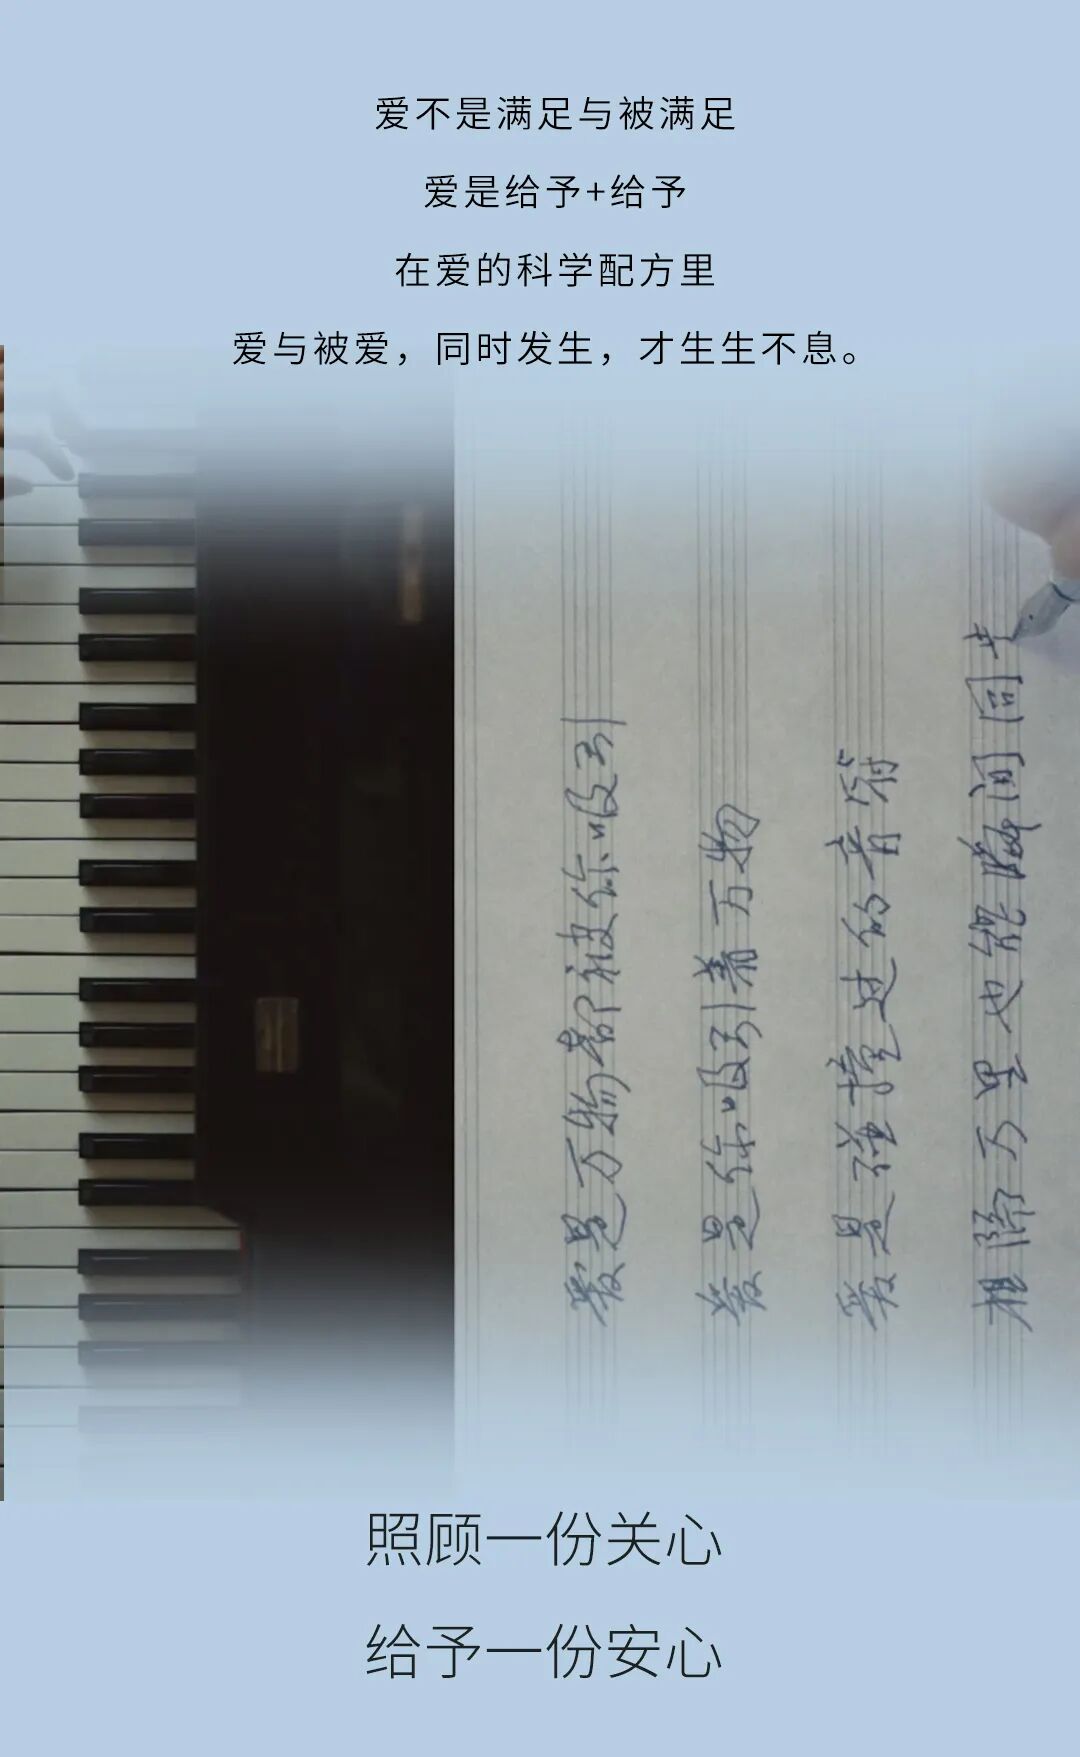 爱不是满足与被满足
爱是给予+给予
在爱的科学配方里
爱与被爱，同时发生，才生生不息。
爱是万物都被你吸引
爱是你吸引着万物
爱是弹错过的音符
相隔万里也能瞬间回
照顾一份关心
给予一份安心